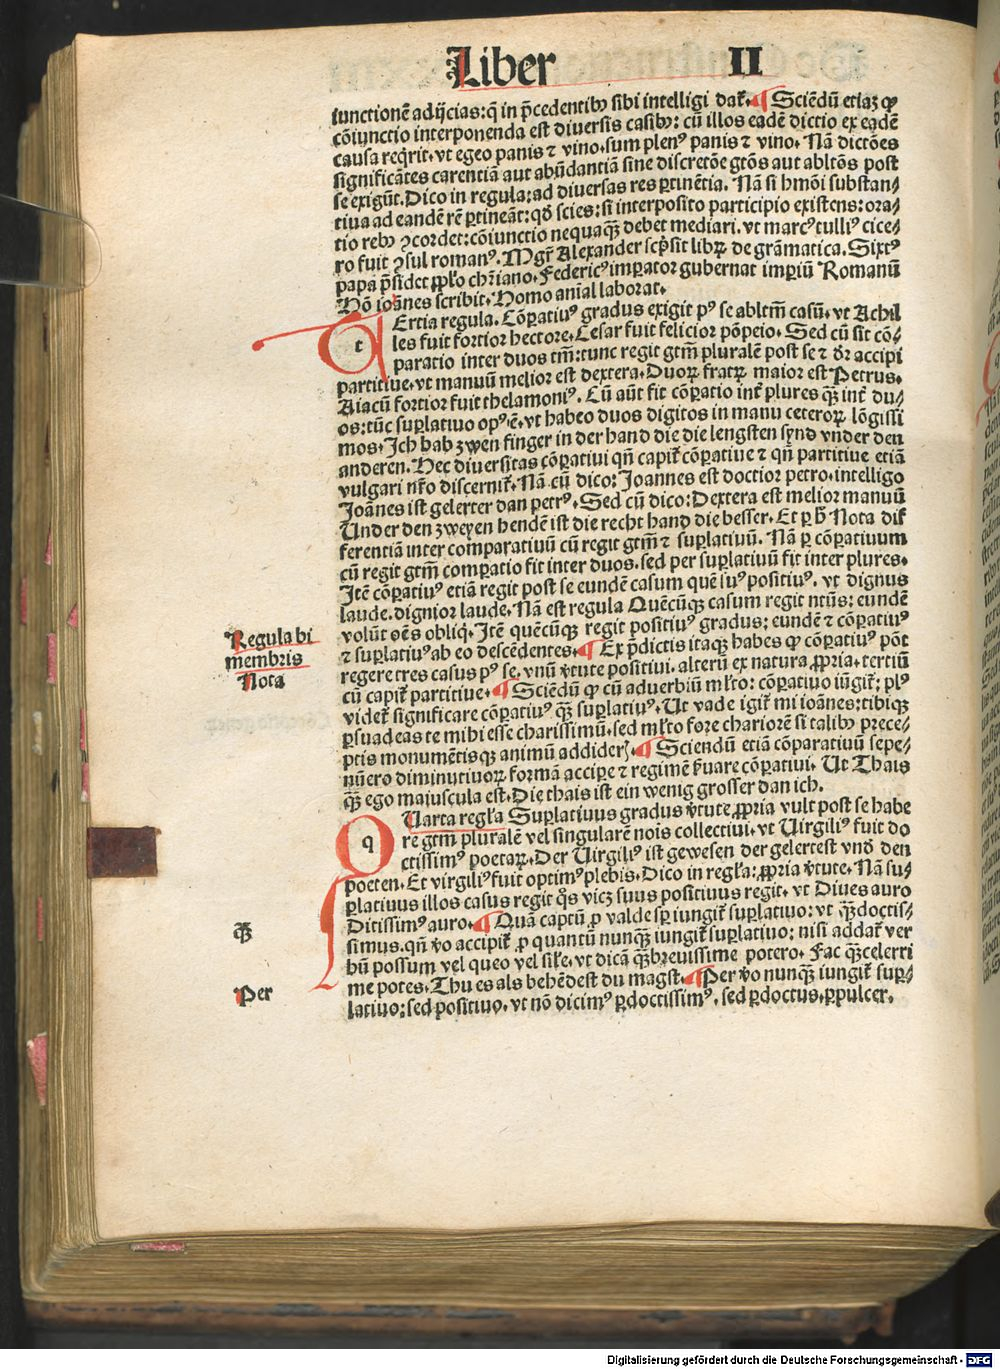 Liber II
iunctionē adijcias: q̄ in p̄cedentibꝰ sibi intelligi dat̄. ¶ Sciēdū etiaꝫ ꝙ
cōiunctio interponenda est diuersis casibꝰ: cū illos eadē dictio ex eadē
causa reqrit. vt egeo panis ⁊ vino. sum plenꝰ panis ⁊ vino. Nā dictōes
significātes carentiā aut abūdantiā sine discretōe gtōs aut abltōs post
se exigūt. Dico in regula: ad diuersas res ꝑtinētia. Nā si hmōi substan⸗
tiua ad eandē rē ꝑtineāt: qđ scies: si interposito participio existens: ora⸗
tio rebꝰ ꝯcordet: cōiunctio nequaqꝫ debet mediari. vt marcꝰ tulliꝰ cice⸗
ro fuit ꝯsul romanꝰ. Mgr̄ Alexander scp̄sit librꝫ de grāmatica. Sixtꝰ
papa p̄sidet ppl̄o chr̄iano. Federicꝰ imꝑator gubernat imꝑiū Romanū
Hō ioānes scribit. Homo anīal laborat.
Tertia regula. Cōꝑatiuꝰ gradus exigit pꝰ se abltm̄ casū. vt Achil
les fuit fortior hectore. Cesar fuit felicior pōpeio. Sed cū sit cō⸗
paratio inter duos tm̄: tunc regit gtm̄ pluralē post se ⁊ dr̄ accipi
partitiue. vt manuū melior est dextera. Duorꝝ fratrꝝ maior est Petrus.
Aiacū fortior fuit thelamoniꝰ. Cū aūt fit cōꝑatio int̄ plures qꝫ int̄ du⸗
os: tūc suꝑlatiuo opꝰ ē. vt habeo duos digitos in manu ceterorꝝ lōgissi
mos. Ich hab zwen finger in der hand die die lengsten synd vnder den
anderen. Hec diuersitas cōꝑatiui qn̄ capit̄ cōꝑatiue ⁊ qn̄ partitiue etiā
vulgari nr̄o discernit̄. Nā cū dico: Joannes est doctior petro. intelligo
Joānes ist gelerter dan petrꝰ. Sed cū dico: Dextera est melior manuū
Under den zweyen hendē ist die recht hand die besser. Et ꝑ ħ Nota dif
ferentiā inter comparatiuū cū regit gtm̄ ⁊ suꝑlatiuū. Nā ꝑ cōꝑatiuum
cū regit gtm̄ comꝑatio fit inter duos. sed per suꝑlatiuū fit inter plures.
Itē cōꝑatiuꝰ etiā regit post se eundē casum quē suꝰ positiuꝰ. vt dignus
laude. dignior laude. Nā est regula Quēcūqꝫ casum regit ntūs: eundē
volūt oēs obliq̄. Itē quēcūqꝫ regit positiuꝰ gradus: eundē ⁊ cōꝑatiuꝰ
⁊ suꝑlatiuꝰ ab eo descēdentes. ¶ Ex p̄dictis itaqꝫ habes ꝙ cōꝑatiuꝰ pōt
regere tres casus pꝰ se. vnū v̄tute positiui. alterū ex natura ꝓpria. tertiū
cū capit̄ partitiue. ¶ Sciēdū ꝙ cū aduerbiū ml̄to: cōꝑatiuo iūgit̄: plꝰ
videt̄ significare cōꝑatiuꝰ qꝫ suꝑlatiuꝰ. Ut vade igit̄ mi ioānes: tibiqꝫ
ꝑsuadeas te mihi esse charissimū. sed ml̄to fore chariorē si talibꝰ prece⸗
ptis monumētisqꝫ animū addiderꝭ. ¶ Sciendū etiā cōparatiuū sepe⸗
nūero diminutiuorꝝ formā accipe ⁊ regimē ẜuare cōꝑatiui. Ut Thais
qꝫ ego maiuscula est. Die thais ist ein wenig grosser dan ich.
Quarta regl̄a Suꝑlatiuus gradus v̄tute ꝓpria vult post se habe
re gtm̄ pluralē vel singularē nois collectiui. vt Uirgiliꝰ fuit do
ctissimꝰ poetarꝝ. Der Uirgiliꝰ ist gewesen der gelertest vnd den
poeten. Et virgiliꝰ fuit optimꝰ plebis. Dico in regl̄a: ꝓpria v̄tute. Nā su⸗
ꝑlatiuus illos casus regit qͦs vicꝫ suus positiuus regit. vt Diues auro
Ditissimꝰ auro. ¶ Quā captū ꝓ valde sp̄ iungit̄ suꝑlatiuo: vt qꝫdoctis⸗
simus. qn̄ v̄o accipit̄ ꝓ quantū nunqꝫ iungit̄ suꝑlatiuo: nisi addat̄ ver
bū possum vel queo vel sil̄e. vt dicā qꝫbreuissime potero. Fac qꝫcelerri
me potes. Thu es als behēdest du magst. ¶ Per v̄o nunqꝫ iungit̄ suꝑ⸗
latiuo: sed positiuo. vt nō dicimꝰ ꝑdoctissimꝰ. sed ꝑdoctus. ꝑpulcer.
Regula bi
membris
Nota
qꝫ
Per
Digitalisierung gefördert durch die Deutsche Forschungsgemeinschaft - DFG